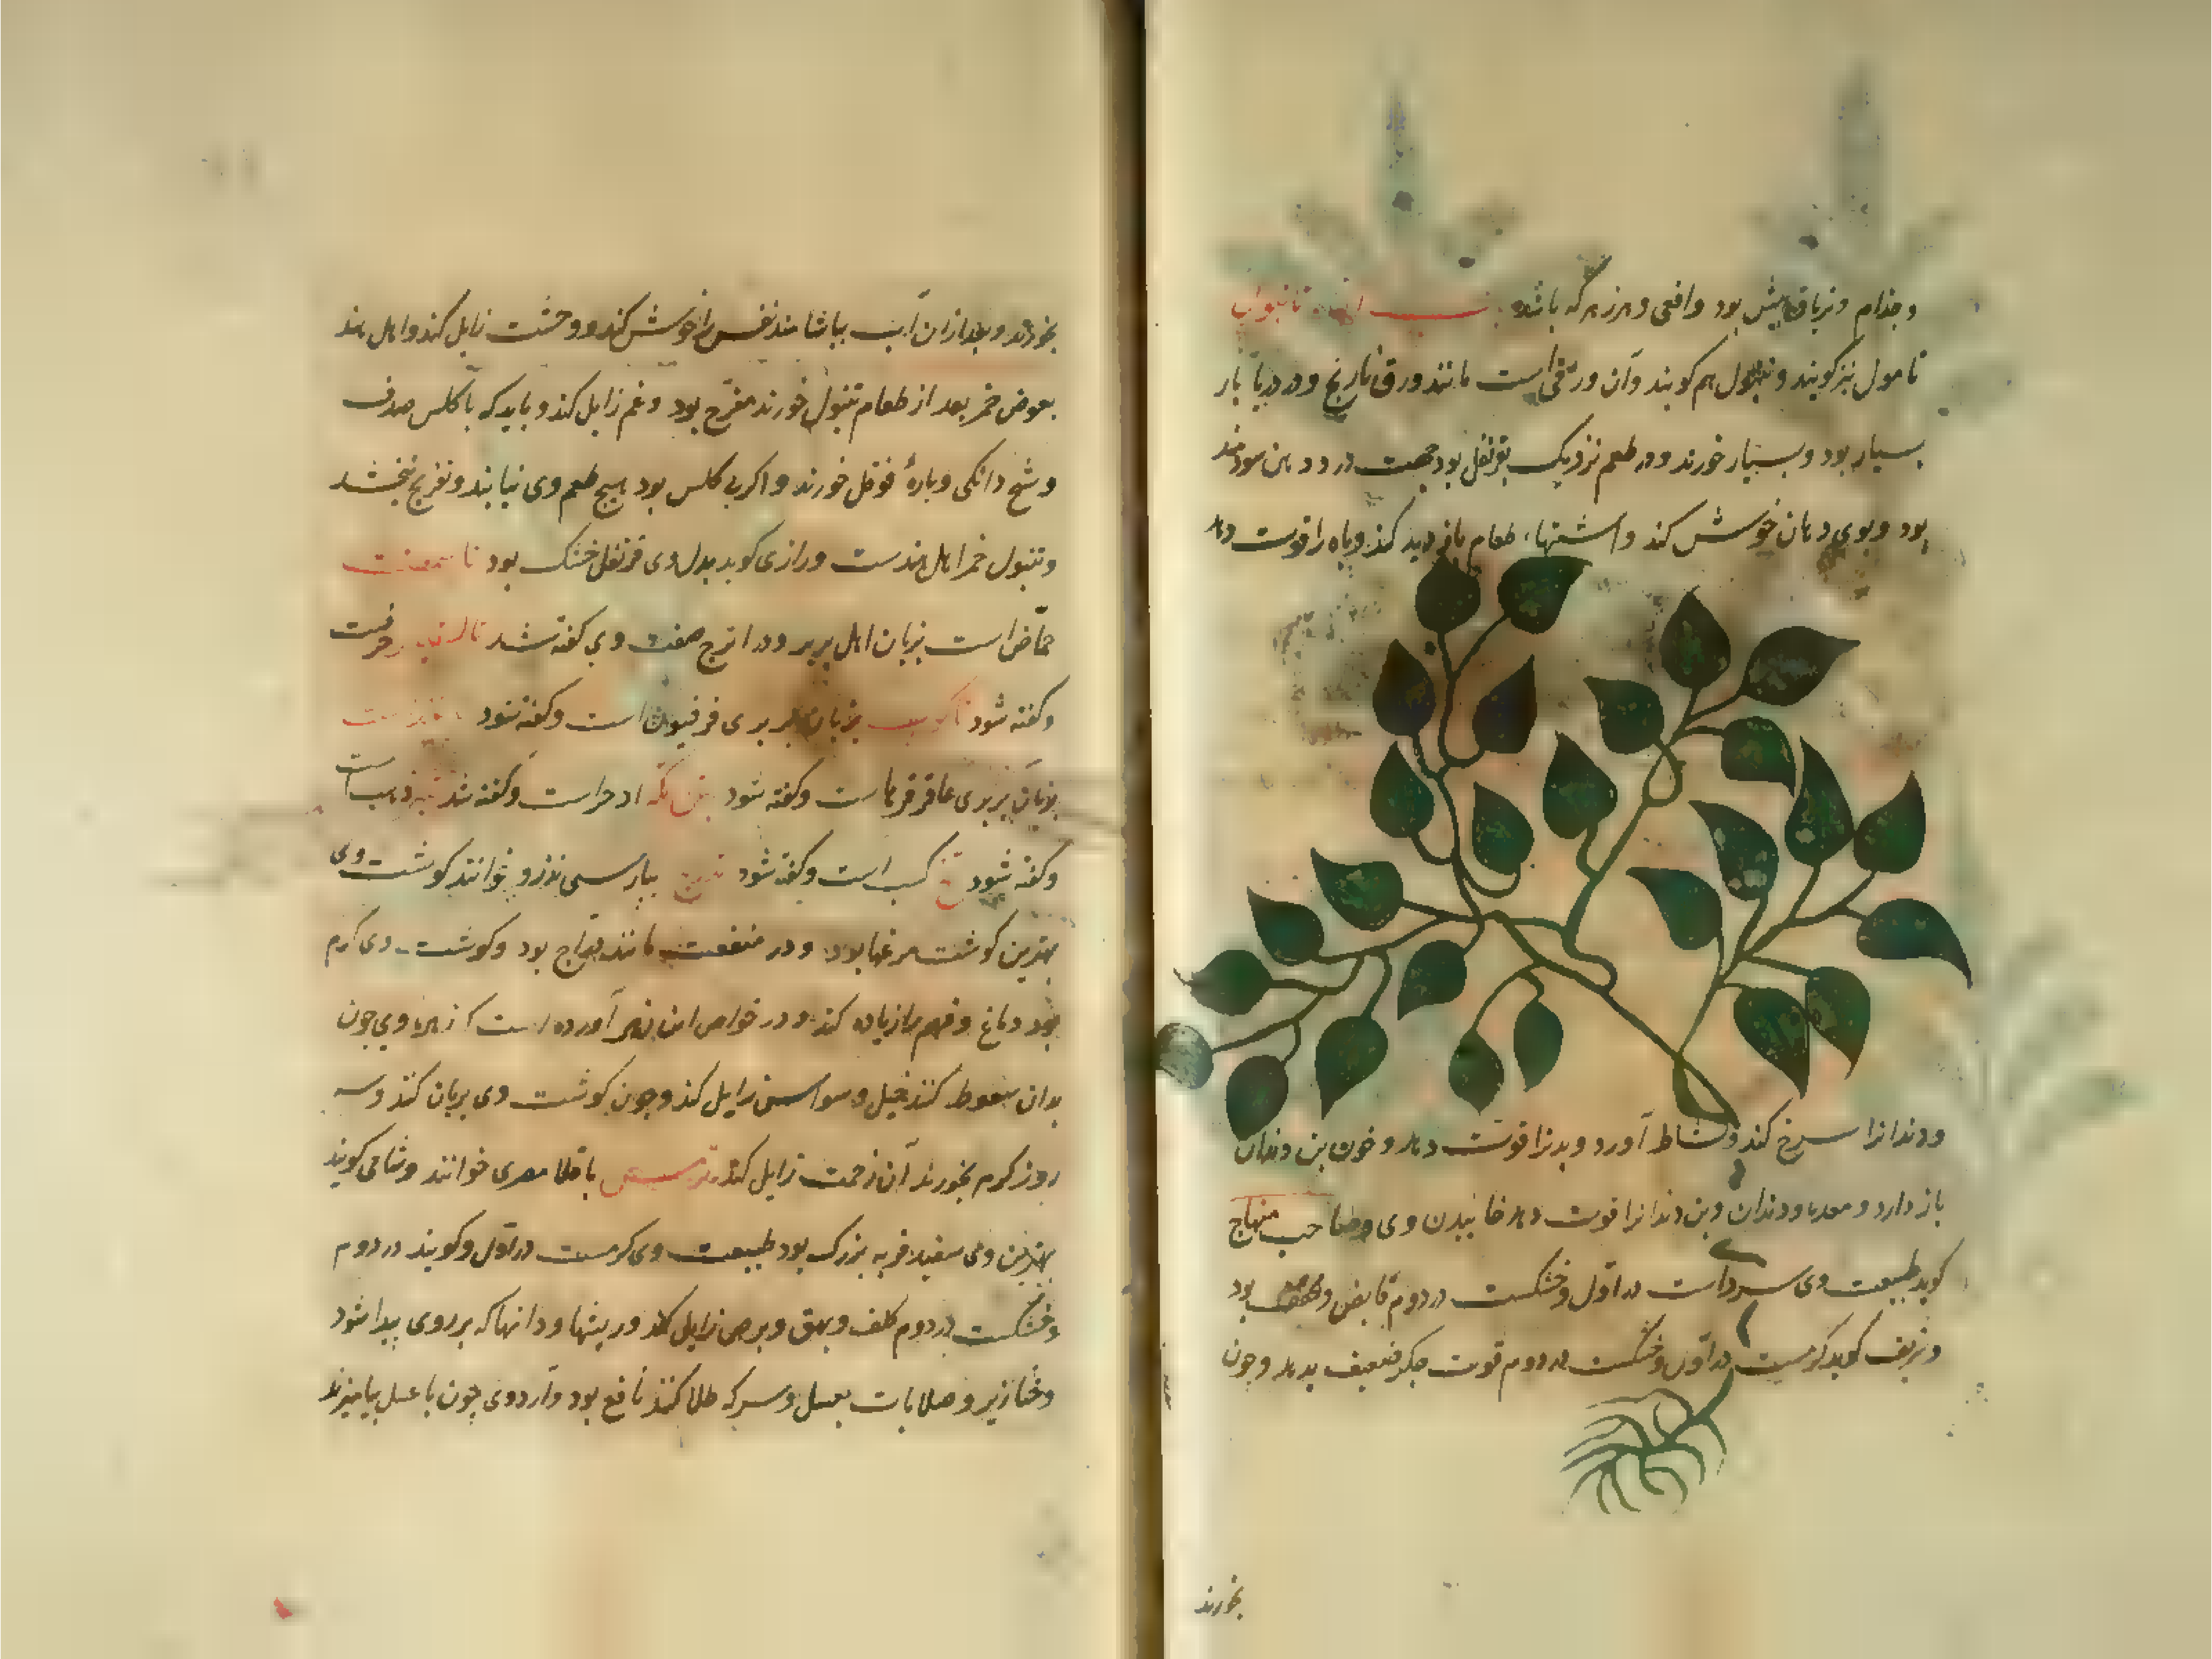 و جذام و تریاق بیش بود و افعی و هر زهر که باشد
تامول نیز کویند و تنبول هم کویند و آن ورقی است مانند ورق نارنج و در دریا بار
بسیار بود و بسیار خورند و در طعم نزدیک بقرنفل بود جهت درد دهن سودمند
بود و بوی دهان خوش کند و اشتهاء طعام بازدید کند و باه را قوت دهد
و دندانرا سرخ کند و نشاط آورد و بدنرا قوت دهد و خون بن دندان
باز دارد و معده و دندان و بن دندانرا قوت دهد خاییدن وی و صاحب منهاج
کوید طبیعت وی سرد است در اول و خشکست در دوم قابض و مجفف بود
و شریف کوید کرمست در اول و خشکست در دوم قوت جکر ضعیف بدهد و چون
بخورند
بخورند و بعد از ان آب بیاشامند نفس را خوش کند و وحشت زایل کند و اهل هند
بعوض خمر بعد از طعام تنبول خورند مفرح بود و غم زایل کند و باید که با کلس صدف
و شخ دانکی و پارهٔ فوفل خورند و اکر بی کلس بود هیچ طعم وی نیابند و تفریح نبخشد
و تنبول خمر اهل هندست و رازی کوید بدل وی قرنفل خشک بود
حماض است بزبان اهل بربر و در اترج صفت وی کفته شد حرفست
و کفته شود بزبان بربری فرفیون است و کفته شود
بزبان بربری عاقرقرحاست و کفته شود تبن مکه اذخر است و کفته شد تبر ذهب است
و کفته شود کسب است و کفته شود تدرج بپارسی تذرو خوانند کوشت وی
بهترین کوشت مرغها بود و در منفعت مانند دراج بود و کوشت وی کرم
بود دماغ و فهم را زیاده کند و در خواص ابن زهر آورده است که زهره وی چون
بدان سعوط کنند خبل و سواس زایل کند و چون کوشت وی بریان کنند و سه
روز کرم بخورند آن زحمت زایل کند ترمس باقلا مصری خوانند و شامی کویند
بهترین وی سفید فربه بزرک بود طبیعت وی کرمست در اول و کویند در دوم
و خشکست در دوم کلف و بهق و برص زایل کند و ریشها و دانها که بر روی پیدا شود
و خنازیر و صلابات بعسل و سرکه طلا کنند نافع بود و آرد وی چون با عسل بیامیزند